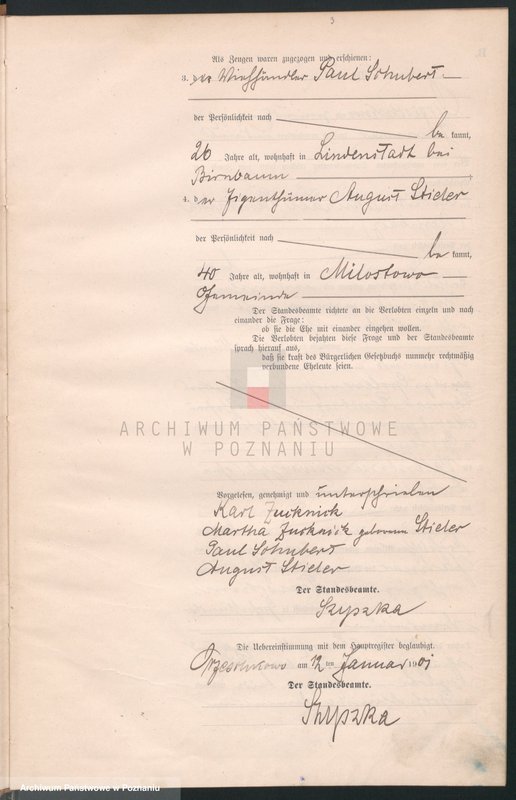 3
Als Zeugen waren zugezogen und erschienen:
3. der Viehhändler Paul Schubert
der Persönlichkeit nach
be kannt,
26 Jahre alt, wohnhaft in Lindenstadt bei
Birnbaum
4. der Eigenthümer August Stieler
der Persönlichkeit nach
be kannt,
40 Jahre alt, wohnhaft in Milostowo
Gemeinde
Der Standesbeamte richtete an die Verlobten einzeln und nach
einander die Frage:
ob sie die Ehe mit einander eingehen wollen.
Die Verlobten bejahten diese Frage und der Standesbeamte
sprach hierauf aus,
daß sie kraft des Bürgerlichen Gesetzbuchs nunmehr rechtmäßig
verbundene Eheleute seien.
ARCHIWUM PAŃSTWOWE
W POZNANIU
Vorgelesen, genehmigt und unterschrieben
Karl Zucknick
Martha Zucknick geborene Stieler
Paul Schubert
August Stieler
Der Standesbeamte.
Szyszka
Die Uebereinstimmung mit dem Hauptregister beglaubigt.
am 12 ten Januar 1901
Der Standesbeamte.
Szyszka
Archiwum Państwowe w Poznaniu